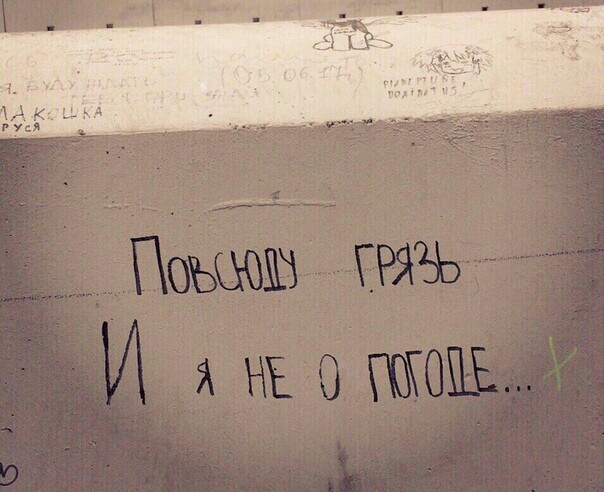 (05.06.14)
Я БУДУ
ЛАКОШКА
РУСЯ
Повсюду грязь
И я не о погоде...